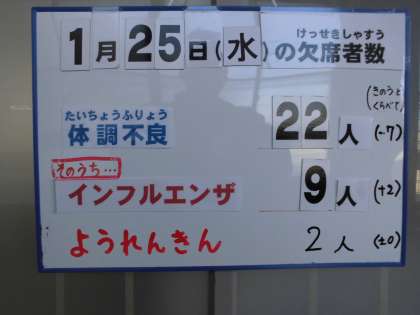 けっせきしゃすう
1月25日(水)の欠席者数
(きのうと
くらべて)
たいちょうふりょう
体調不良 22人 (-7)
そのうち…
インフルエンザ 9人 (+2)
ようれんきん 2人 (±0)